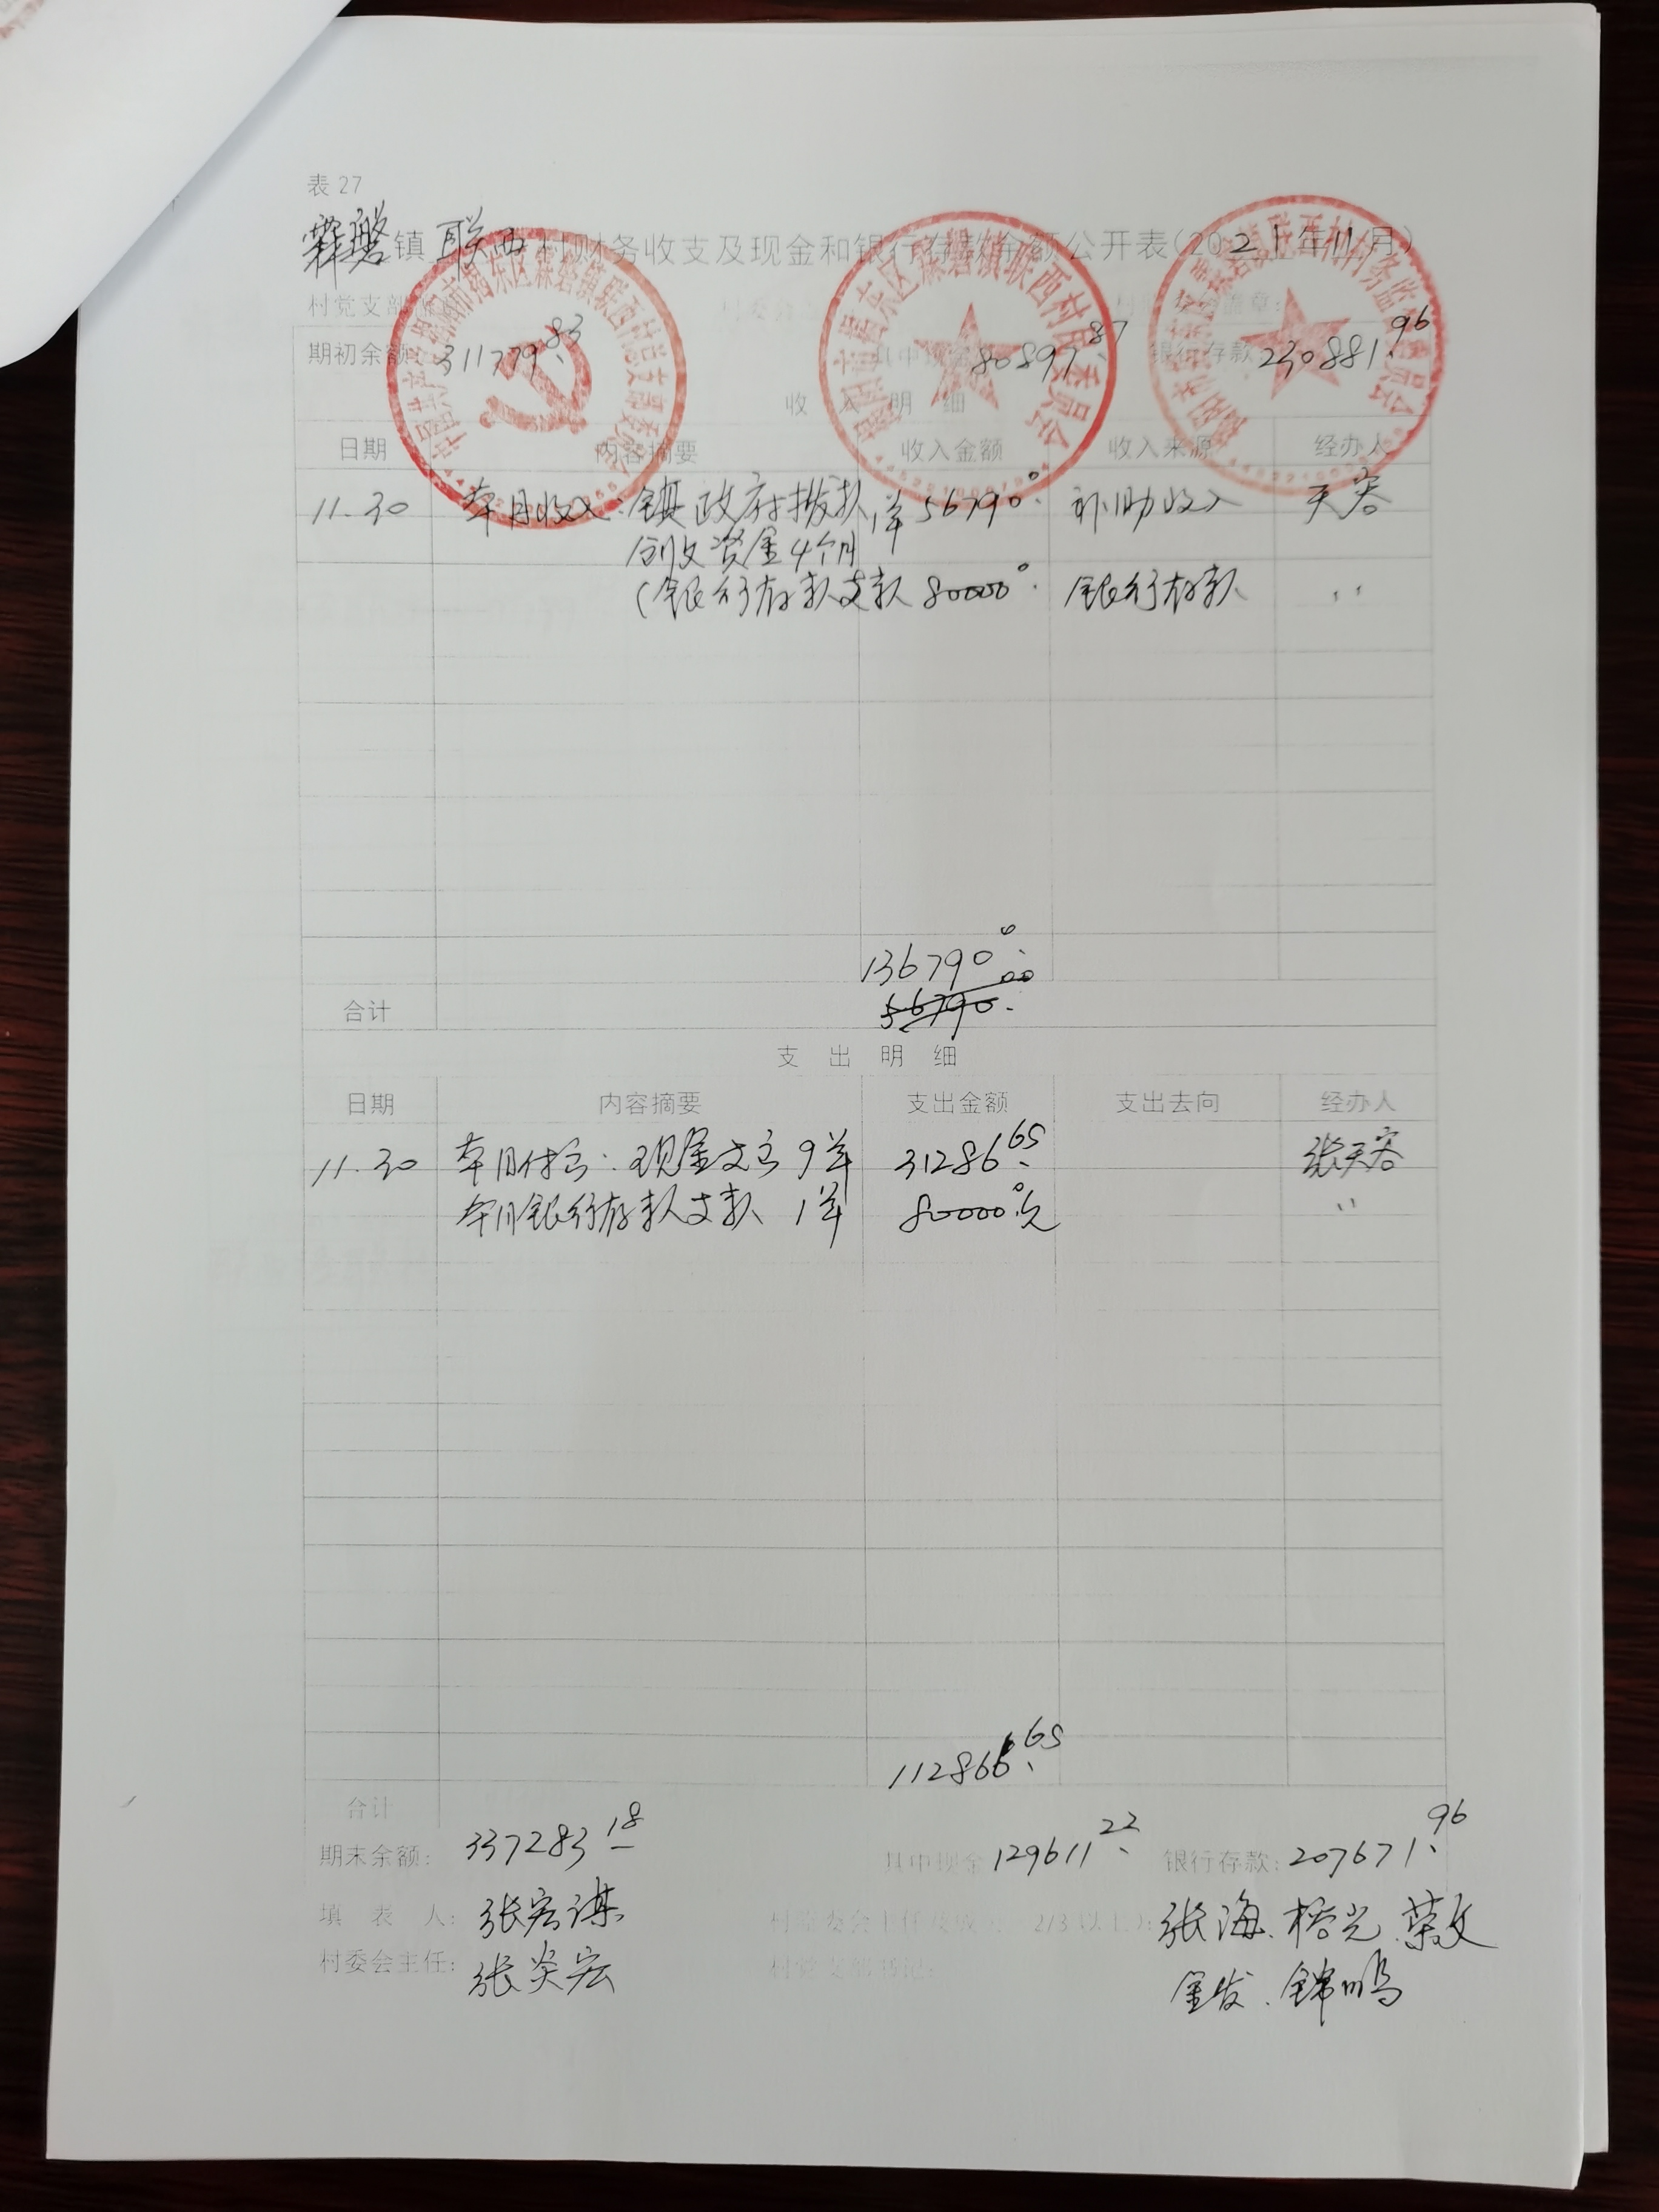 表 27
霖磐镇联西村财务收支及现金和银行存款余额公开表(2021年11月)
村党支部 村委会 盖章:
期初余额 311779.83 其中现金 80897.87 银行存款 230881.96
收入明细
日期 内容摘要 收入金额 收入来源 经办人
11.30 本月收入:镇政府拨款 1单 56790.0 补助收入 天容
创文资金4个月
(银行存款支款 80000.0 银行存款 〃
136790.0
合计 56790.00
支出明细
日期 内容摘要 支出金额 支出去向 经办人
11.30 本月付出:现金支出 9单 31286.65 张天容
本月银行存款支款 1单 80000.0元 〃
11286.65
合计
期末余额: 337283.18 其中现金 129611.22 银行存款: 207671.96
填表人: 张宏谋 村监委会主任及成员(2/3以上): 张海.榕光.荣文
村委会主任: 张炎宏 村党支部书记: 金发.锦鸣